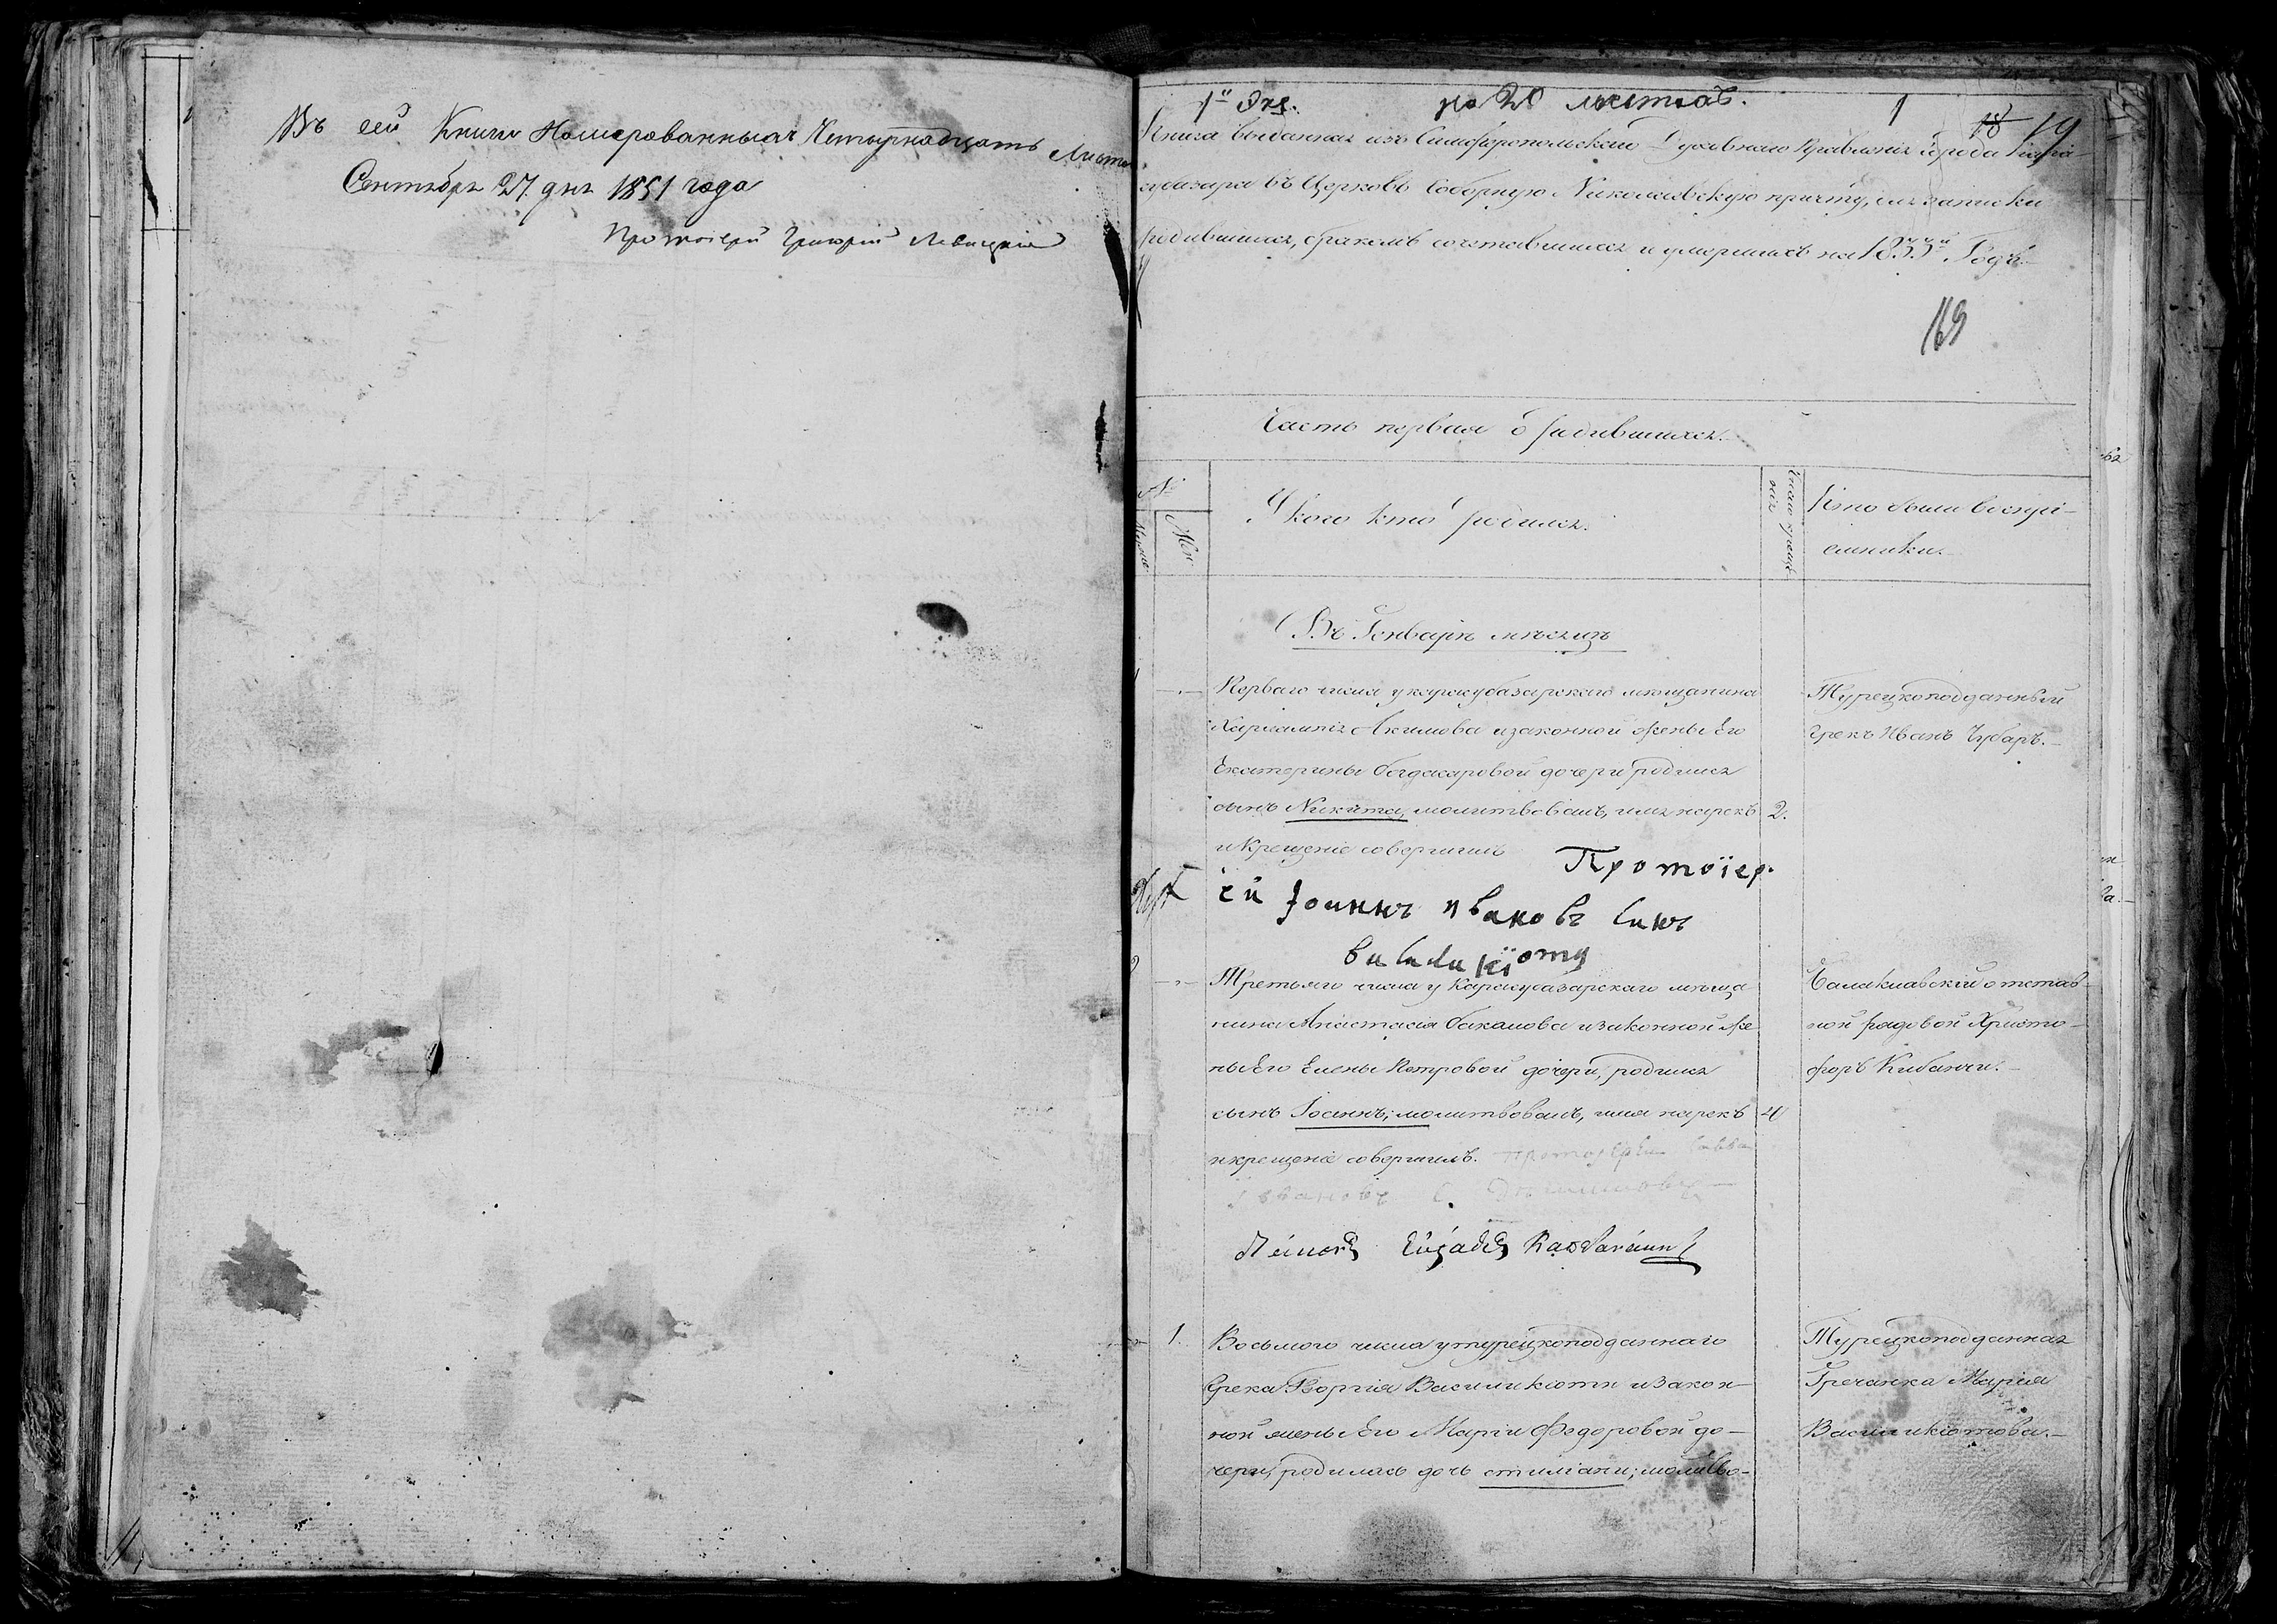 Въ сей Книги Номерованныхъ Четырнадцать Листов
Сентября 27 дня 1851 года
Протоіерей Григорій Левицкій
1й Экз. на 20 листахъ. 1 18 19
Книга выданная изъ Симферопольскаго Духовнаго Правленія города Кара-
субазара въ Церковь Соборную Николаевскую причту, для записки
родившихся, бракомъ сочетавшихся и умершихъ на 1833й Годъ.
169
Часть первая о родившихся.
№
Муж
Жен
У кого кто родился.
Число креще-
нія
Кто были воспрі-
емники.
Въ Генварѣ мѣсяцѣ
Перваго числа у карасубазарскаго мещанина
Харлампія Акимова и законной жены Его
Екатерины богдасаровой дочери родился
сынъ Никита, молитвовалъ, имя нарекъ 2.
и Крещеніе совершилъ
Турецкоподданный
Грекъ Иванъ Чубаръ.
Протоіер.
ей Іоаннъ Ивановъ Синъ
василикіоти
2
Третьяго числа у Карасубазарскаго меща
нина Анастасія бакалова и законной же
ны Его Елены Петровой дочери, родился
сынъ Іоаннъ; молитвовалъ, имя нарекъ
и крещеніе совершилъ. протоіерей
Балаклавскій отстав-
ной рядовой Христо-
форъ
1.
Восьмого числа у турецкоподданнаго
Грека Георгія Василикіоти и закон-
ной жены Его Маріи Федоровой до-
чери, родилась дочь стиліани; молитво-
Турецкоподданная
Гречанка Марія
Василикіотова.